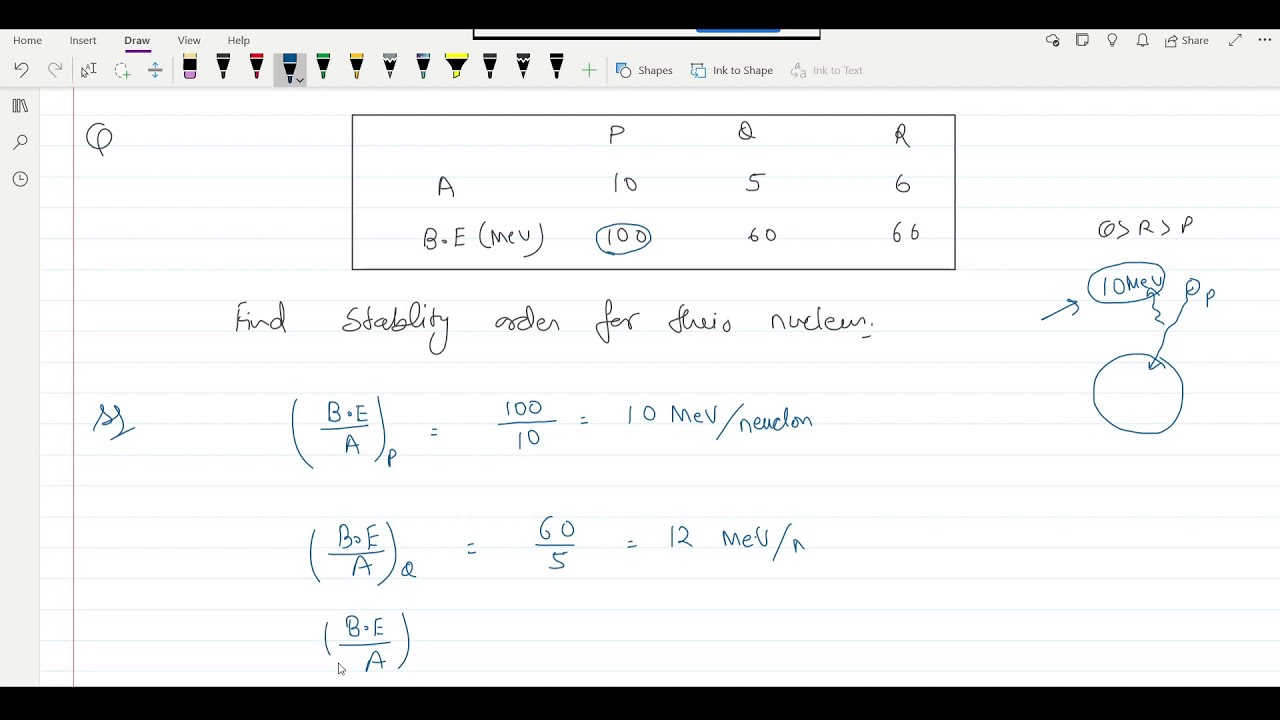 Home Insert Draw View Help
Share
Shapes Ink to Shape Ink to Text
Q
P Q R
A 10 5 6
B.E (MeV) 100 60 66
Q > R > P
10 MeV P
Find Stablity order for theis nucleus.
Sol
(B.E/A)P = 100/10 = 10 MeV/neuclon
(B.E/A)Q = 60/5 = 12 MeV/n
(B.E/A)